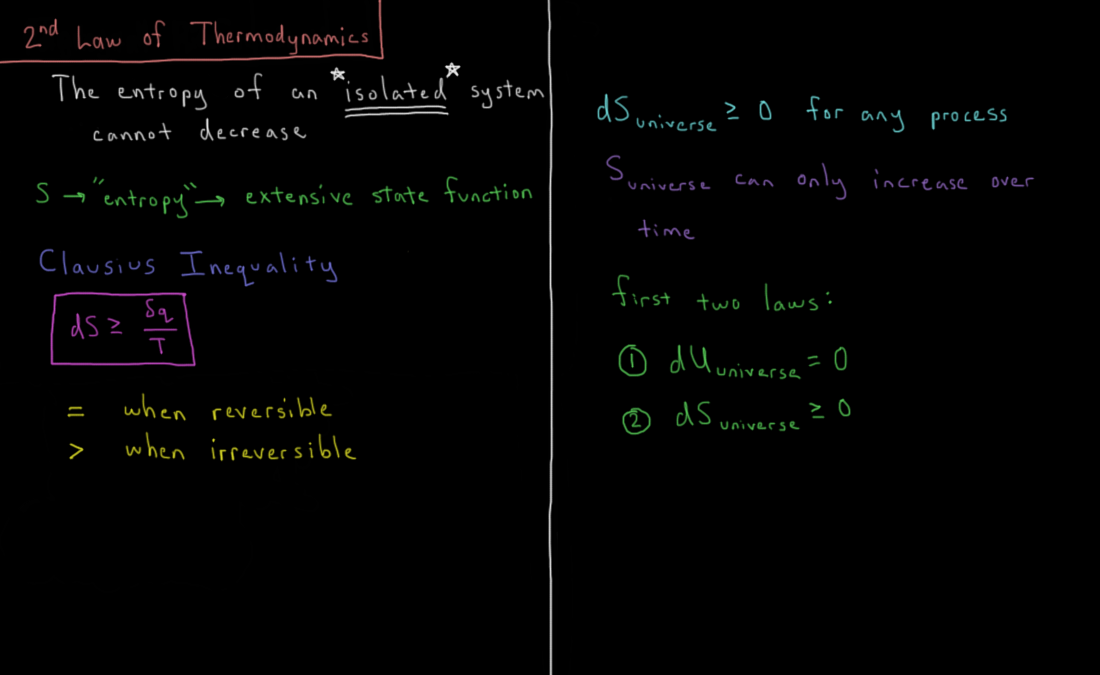 2nd Law of Thermodynamics
The entropy of an *isolated* system
cannot decrease
S → "entropy" → extensive state function
Clausius Inequality
dS ≥ δq/T
= when reversible
> when irreversible
dS universe ≥ 0 for any process
S universe can only increase over
time
first two laws:
① dU universe = 0
② dS universe ≥ 0